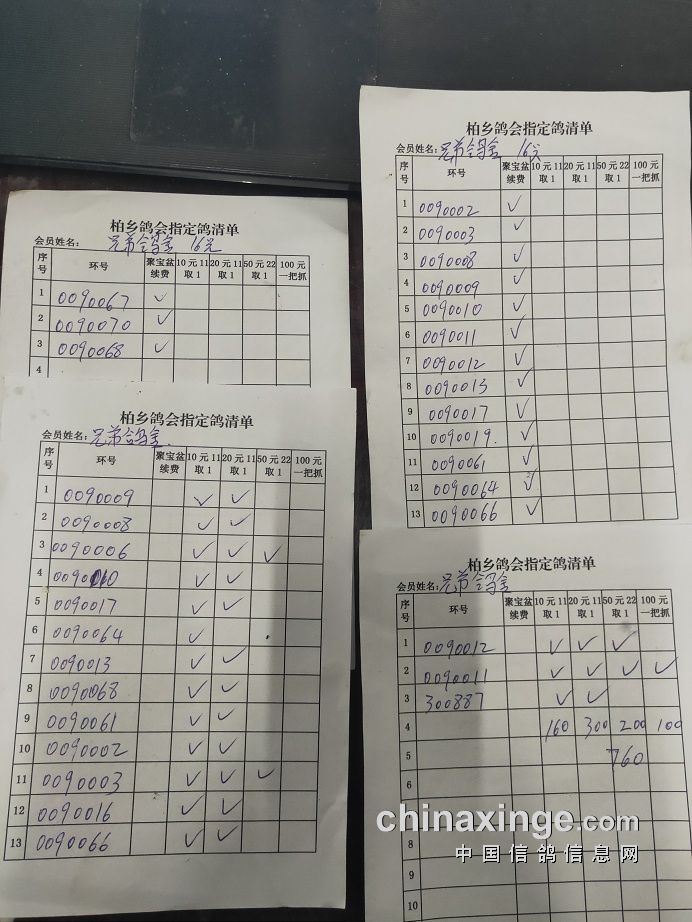 柏乡鸽会指定鸽清单
会员姓名: 兄弟鸽舍 16元
序号 环号 聚宝盆续费 10元11取1 20元11取1 50元22取1 100元一把抓
1 0090067 ✓
2 0090070 ✓
3 0090068 ✓
4
柏乡鸽会指定鸽清单
会员姓名: 兄弟鸽舍 16元
序号 环号 聚宝盆续费 10元11取1 20元11取1 50元22取1 100元一把抓
1 0090002 ✓
2 0090003 ✓
3 0090008 ✓
4 0090009 ✓
5 0090010 ✓
6 0090011 ✓
7 0090012 ✓
8 0090013 ✓
9 0090017 ✓
10 0090019. ✓
11 0090061 ✓
12 0090064 ✓
13 0090066 ✓
柏乡鸽会指定鸽清单
会员姓名: 兄弟鸽舍.
序号 环号 聚宝盆续费 10元11取1 20元11取1 50元22取1 100元一把抓
1 0090009 ✓ ✓
2 0090008 ✓ ✓
3 0090006 ✓ ✓ ✓
4 0090010 ✓ ✓
5 0090017 ✓ ✓
6 0090064 ✓
7 0090013 ✓ ✓
8 0090068 ✓ ✓
9 0090061 ✓ ✓
10 0090002 ✓ ✓
11 0090003 ✓ ✓ ✓
12 0090016 ✓ ✓
13 0090066 ✓ ✓
柏乡鸽会指定鸽清单
会员姓名: 兄弟鸽舍
序号 环号 聚宝盆续费 10元11取1 20元11取1 50元22取1 100元一把抓
1 0090012 ✓ ✓ ✓
2 0090011 ✓ ✓ ✓ ✓
3 300887 ✓ ✓
4 160 300 200 100
5 760
6
chinaxinge.com
8 中国信鸽信息网
9
10